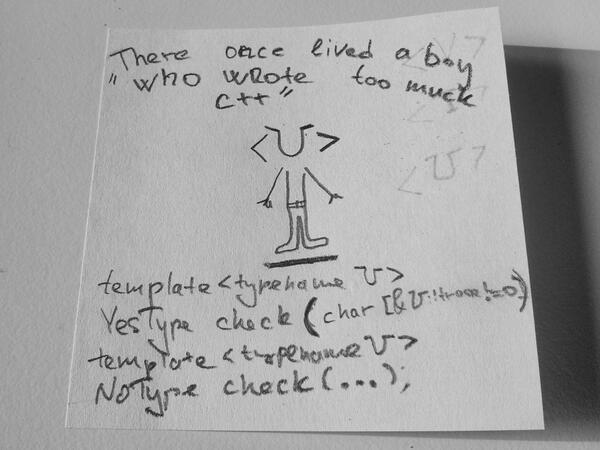 There once lived a boy
"who wrote too much
C++"
<U>
<U>
<U>
<U>
template <typename U>
YesType check (char [&U::trace != 0)
template <typename U>
NoType check (...);